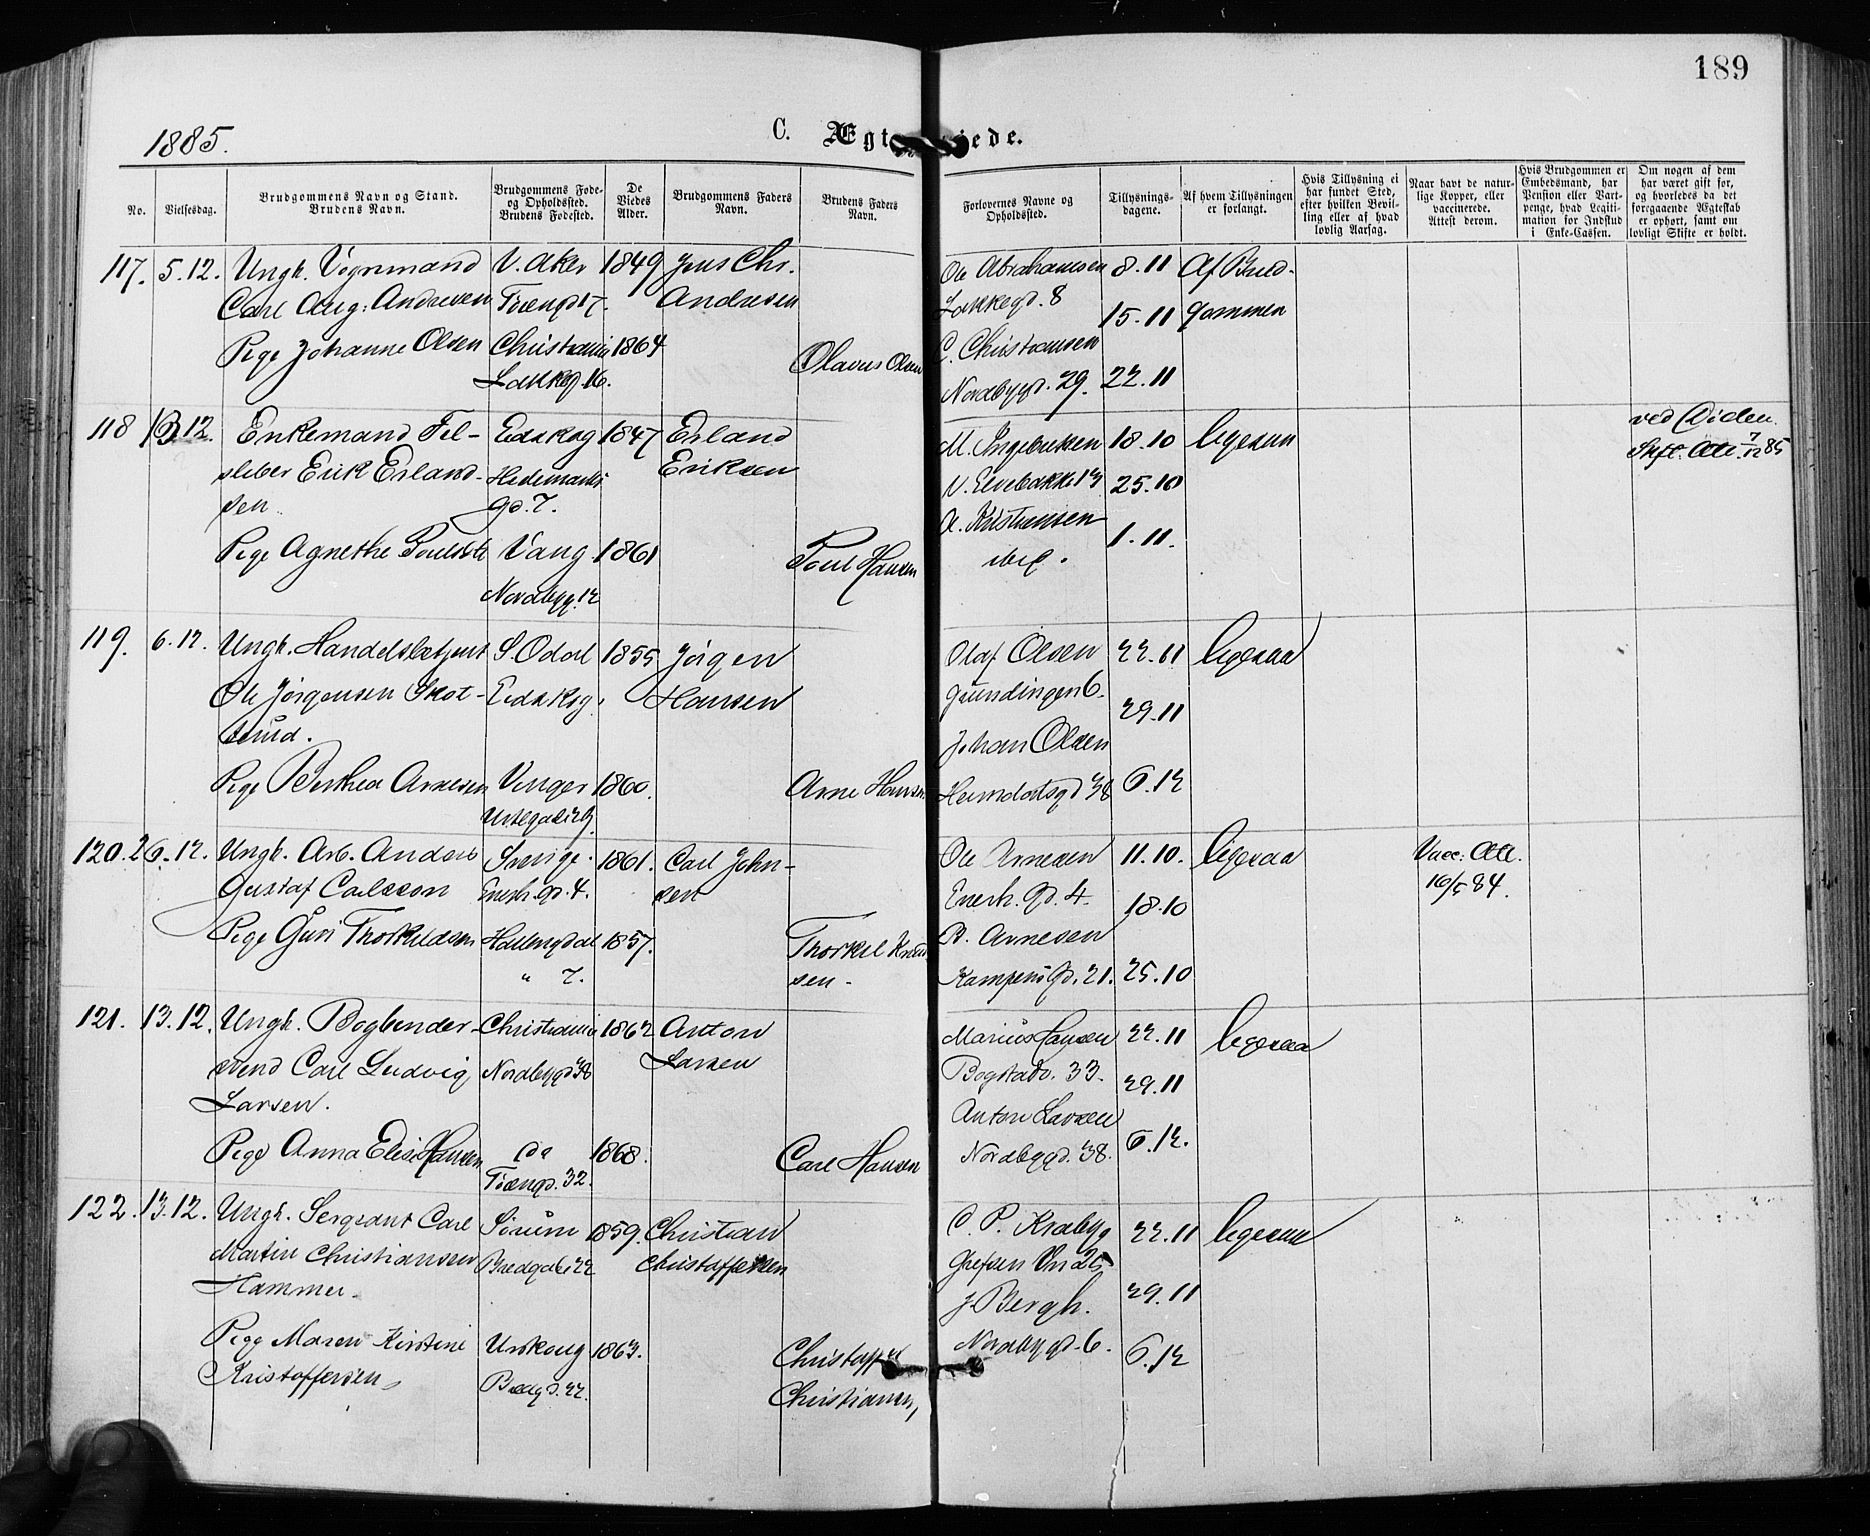 189
1885.
C. Ægt
ede.
No.
Vielsesdag.
Brudgommens Navn og Stand.
Brudens Navn.
Brudgommens Føde-
og Opholdssted.
Brudens Fødested.
De
Viedes
Alder.
Brudgommens Faders
Navn.
Brudens Faders
Navn.
Forlovernes Navne og
Opholdssted.
Tillysnings-
dagene.
Af hvem Tillysningen
er forlangt.
Hvis Tillysning ei
har fundet Sted,
efter hvilken Bevil-
ling eller af hvad
lovlig Aarsag.
Naar havt de natur-
lige Kopper, eller
vaccinerede.
Attest derom.
Hvis Brudgommen er
Embedsmand, har
Pension eller Vart-
penge, hvad Legiti-
mation for Indskud
i Enke-Cassen.
Om nogen af dem
har været gift før,
og hvorledes da det
foregaaende Ægteskab
er ophørt, samt om
lovligt Skifte er holdt.
117. 5.12. Ungk. Vognmand V. Aker 1849 Jens Chr. Ole Abrahamsen 8.11 Af Brud-
Carl Aug: Andresen Tøiengd 7. Andresen Lakkegd. 8 15.11 gommen
Pige Johanne Olsen Christiania 1864 Olavus Olsen C. Christiansen
Lakkeg. 16. Nordbygd. 29. 22.11
118 13.12. Enkemand Føl- Eidskog 1847 Erland M. Ingebretsen 18.10 ligesaa ved Døden
sliber Erik Erland- Hedemarks Eriksen N. Elvebakke 13 25.10 Skft. Att. 7/12 85
sen. gd. 7. A. Kristiansen 1.11.
Pige Agnethe Vang 1861 Poul Hansen ibid.
Nordbygg. 12
119. 6.12. Ungk. Handelsbetjent S. Odal 1855 Jørgen Olaf Olsen 22.11 ligesaa
Ole Jørgensen Skot- Eidskog. Hansen Grundingen 6. 29.11
terud. Johan Olsen
Pige Berthea Arnesen Vinger 1860. Arne Hansen Heimdalsgd 38 6.12
120. 26.12. Ungk. Arb. Anders Sverige. 1861. Carl John- Ole Arnesen 11.10. ligesaa Vacc: Att.
Gustaf Carlsson Enerh. gd. 4. sen Enerh. Gd. 4. 18.10 16/5 84.
Pige Guri Thorkildsen Hallingdal 1857. Thorkel Knud- B. Arnesen
" 7. sen. Kampens Gd. 21. 25.10
121. 13.12. Ungk. Bogbinder- Christiania 1862 Anton Marius Hansen 22.11 ligesaa
svend Carl Ludvig Nordbygd 38 Larsen Bogstadv. 33. 29.11
Larsen. Anton Larsen
Pige Anna Elise Hansen do 1868. Carl Hansen Nordbygd. 38. 6.12.
Tøiengd. 32.
122. 13.12. Ungk. Sergeant Carl Sørum 1859. Christian C. P. Krabyg 22.11 ligesaa
Martin Christiansen Bredgd. 22 Christoffersen Grefsen 29.11
Hammer. J. Bergh.
Pige Maren Kirstine Urskoug 1863. Christoffer Nordbygd. 6. 6.12
Kristoffersen, Bredgd. 22. Christiansen,